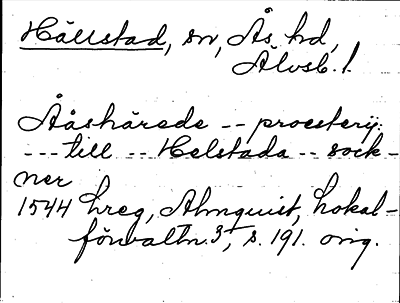 Hällstad, sn, Ås hd,
Älvsb. l.
Ååshärede -- proesterij:
--- till -- Helstada -- sock-
ner
1544 hreg, Almquist, Lokal-
förvaltn. 3, s. 191. orig.